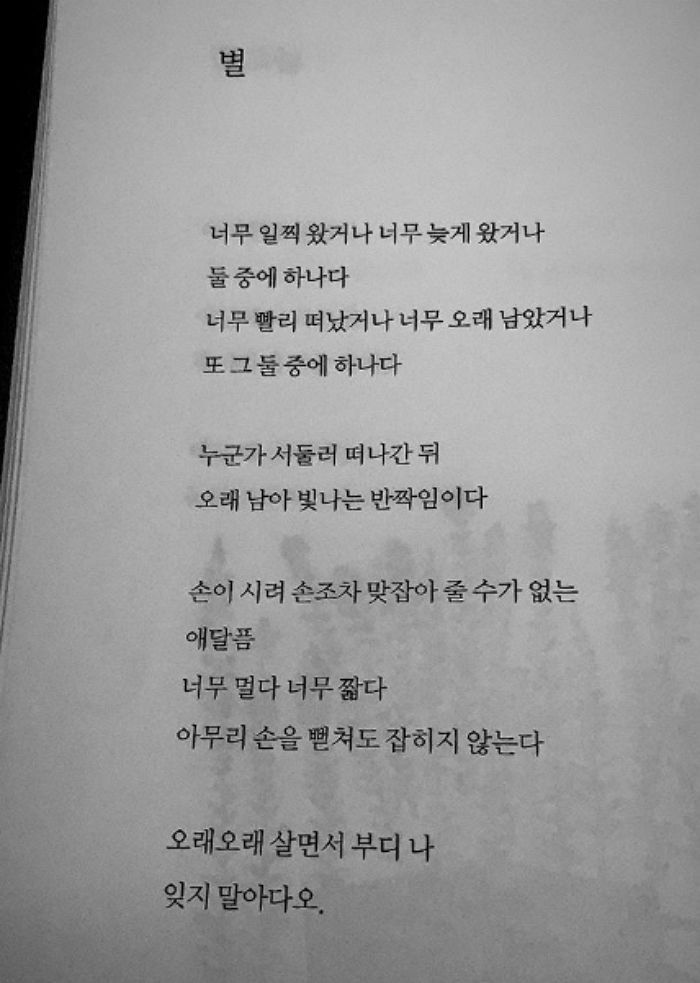 별
너무 일찍 왔거나 너무 늦게 왔거나
둘 중에 하나다
너무 빨리 떠났거나 너무 오래 남았거나
또 그 둘 중에 하나다
누군가 서둘러 떠나간 뒤
오래 남아 빛나는 반짝임이다
손이 시려 손조차 맞잡아 줄 수가 없는
애달픔
너무 멀다 너무 짧다
아무리 손을 뻗쳐도 잡히지 않는다
오래오래 살면서 부디 나
잊지 말아다오.